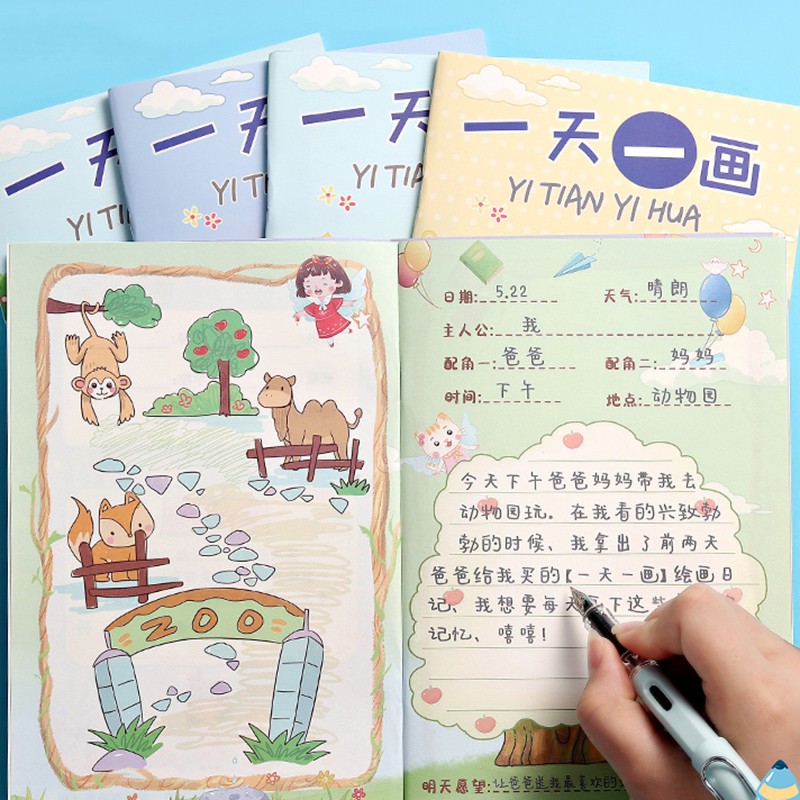 一天
YI TIA
一天
YI TI
一天
YI TIA
一天一画
YI TIAN YI HUA
ZOO
日期: 5.22 天气: 晴朗
主人公: 我
配角一: 爸爸 配角二: 妈妈
时间: 下午 地点: 动物园
今天下午爸爸妈妈带我去
动物园玩。在我看的兴致勃
勃的时候、我拿出了前两天
爸爸给我买的【一天一画】绘画日
记、我想要每天 下这些
记忆、嘻嘻!
明天愿望: 让爸爸送我最喜欢的